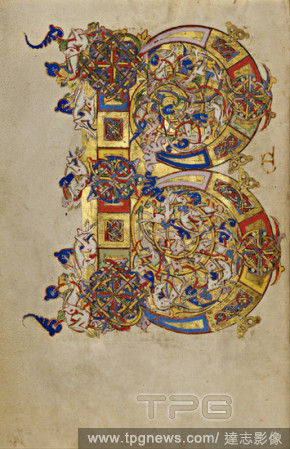 B
TPG
www.tpgnews.com/ 達志影像